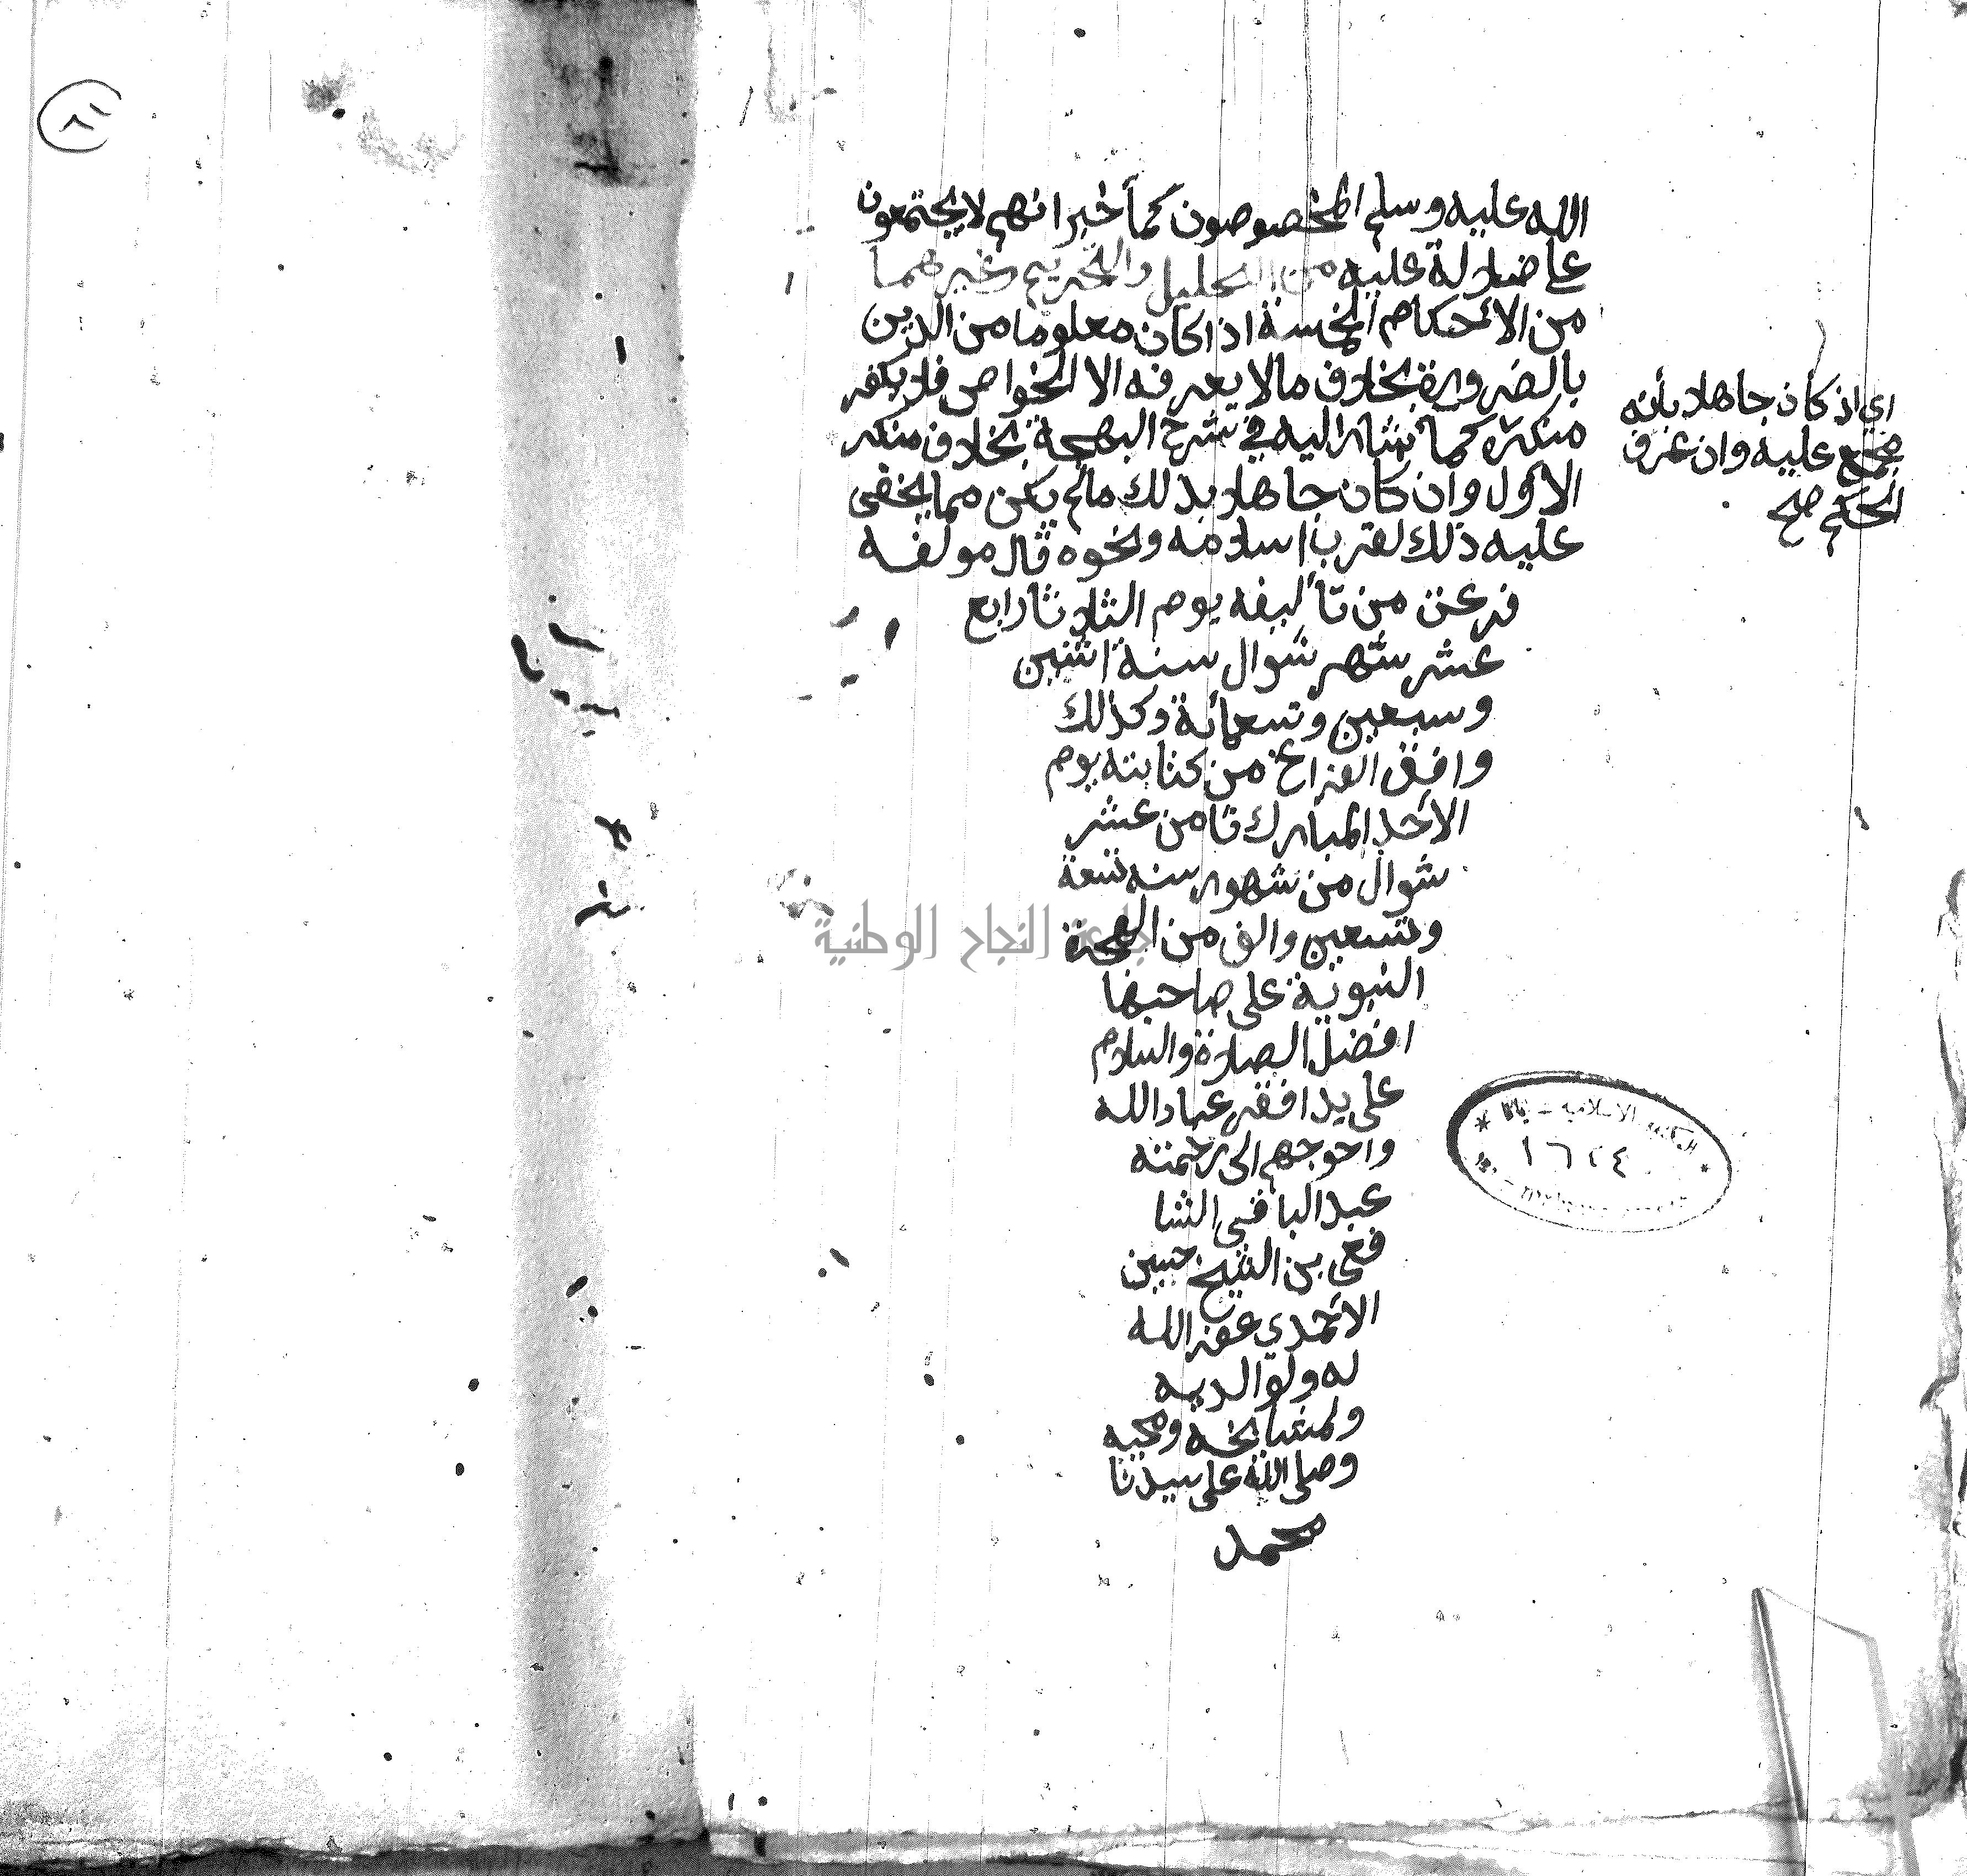 الله عليه وسلم المخصوصون كما أخبر انهم لا يجتمعون
على ضلالة عليه من التحليل والتحريم وغيرهما
من الاحكام الخمسة اذا كان معلوما من الدين
بالضرورة بخلاف مالا يعرفه الا الخواص فلا يكفر
منكره كما أشار اليه في شرح البهجة بخلاف منكر
الاول وان كان جاهلا بذلك مالم يكن مما يخفى
عليه ذلك لقرب اسلامه ونحوه قال مولفه
فرغت من تأليفه يوم الثلاثا رابع
عشر شهر شوال سنة اثنين
وسبعين وتسعمائة وكذلك
وافق الفراغ من كتابته يوم
الأحد المبارك ثامن عشر
شوال من شهور سنه تسعة
وتسعين والف من الهجرة
النبوية على صاحبها
افضل الصلاة والسلام
على يد افقر عباد الله
واحوجهم الى رحمته
عبد الباقي الشا
فعي بن الشيخ حسين
الأحمدي غفر الله
له ولوالديه
ولمشايخه ومحبيه
وصلى الله على سيدنا
محمد
اي اذ كان جاهلا بأنه
مجمع عليه وان عرف
الحكم صح
جامعة النجاح الوطنية
الاسلامية - يافا
١٦٢٤